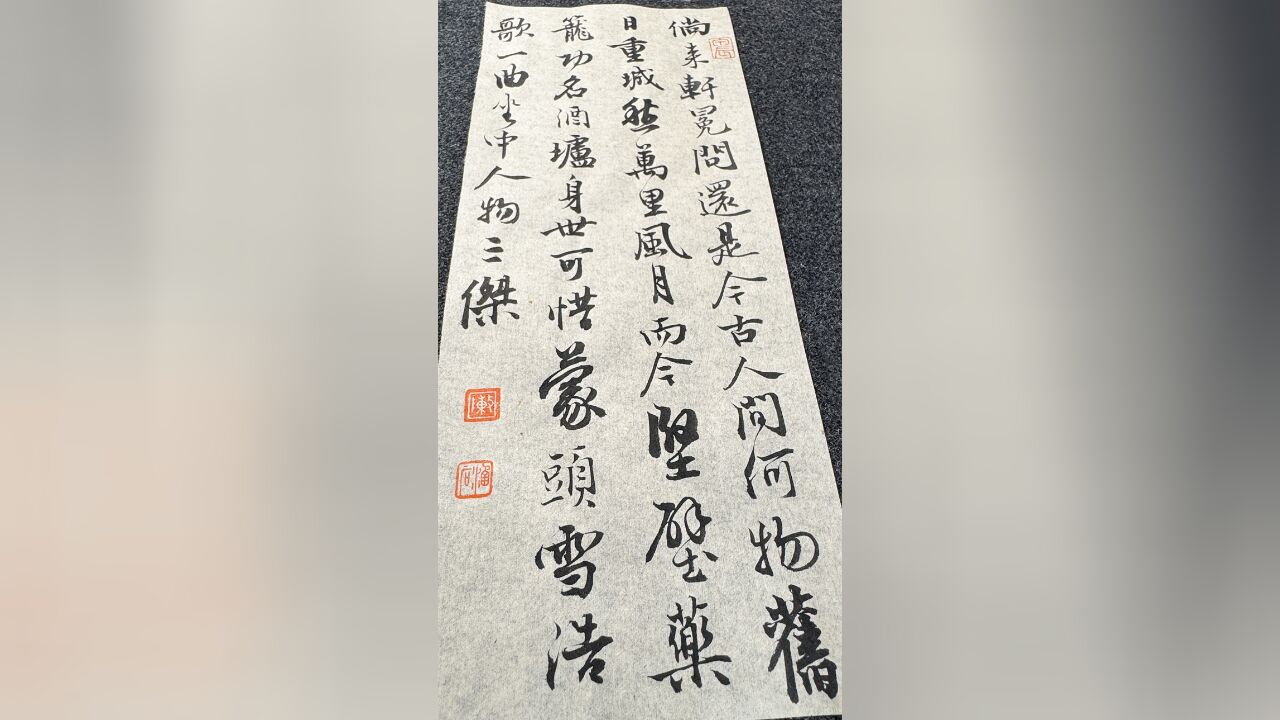 倘来軒冕問還是今古人間何物舊
日重城愁萬里風月而今堅壁藥
籠功名酒壚身世可惜蒙頭雪浩
歌一曲坐中人物三傑